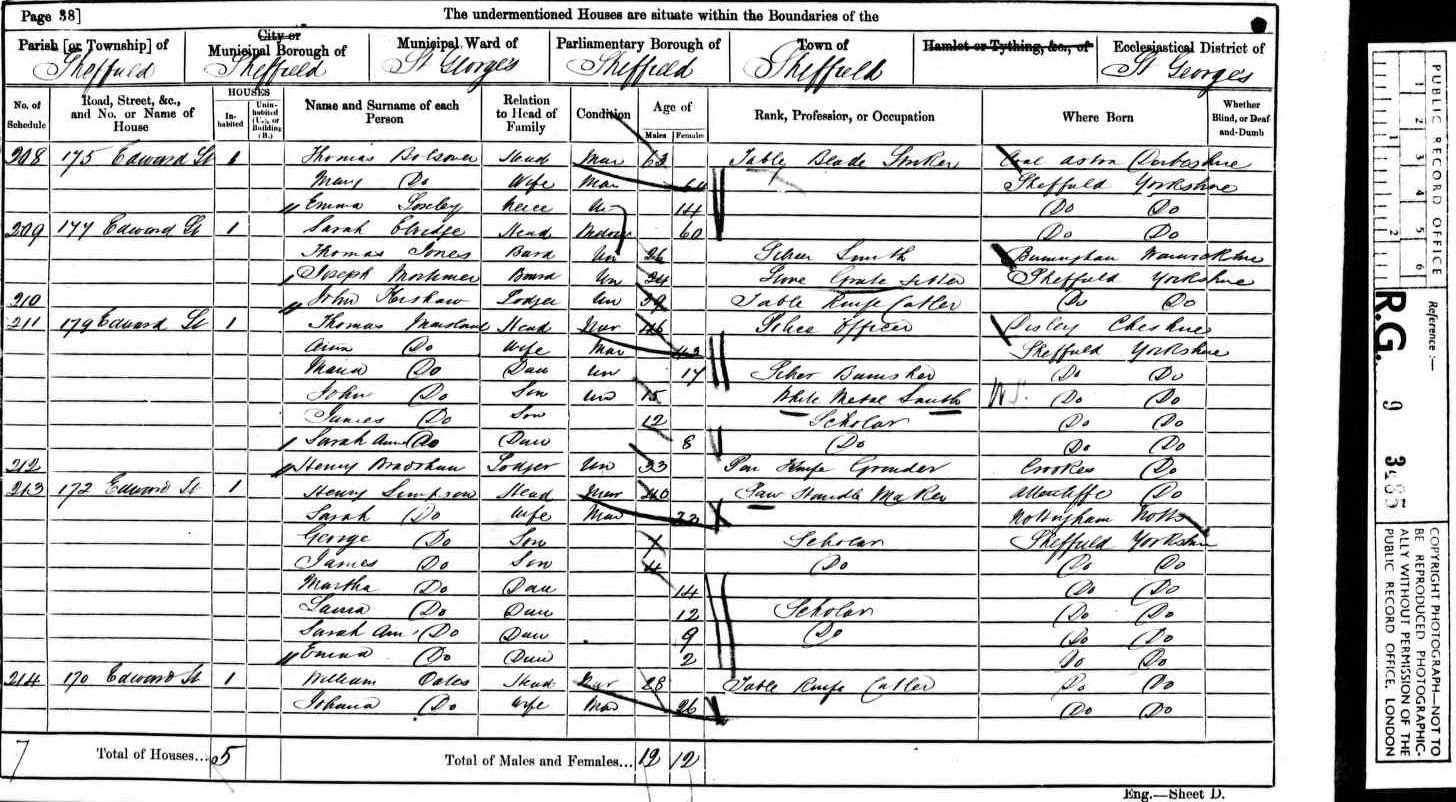 Page 38] The undermentioned Houses are situate within the Boundaries of the
Parish [or Township] of City or Municipal Borough of Municipal Ward of Parliamentary Borough of Town of Hamlet or Tything, &c., of Ecclesiastical District of
Sheffield Sheffield St Georges Sheffield Sheffield St Georges
No. of Schedule Road, Street, &c., and No. or Name of House HOUSES Inhabited Uninhabited (U.), or Building (B.) Name and Surname of each Person Relation to Head of Family Condition Age of Males Females Rank, Profession, or Occupation Where Born Whether Blind, or Deaf-and-Dumb
208 175 Edward St 1 Thomas Bolsover Head Mar 63 Table Blade Coal Aston Derbeshire
Mary Do Wife Mar Sheffield Yorkshire
Emma Neice Un 14 Do Do
209 177 Edward St 1 Sarah Head 60 Do Do
Thomas Jones Board Un 26 Smith Birmingham Warwickshire
Joseph Mortimer Board Un 24 Stove Grate Sheffield Yorkshire
210 John Kershaw Lodger Un 29 Table Knife Cutler Do Do
211 179 Edward St 1 Thomas Head Mar 46 Officer Disley Cheshire
Do Wife Mar 43 Sheffield Yorkshire
Maria Do Dau Un 17 Do Do
John Do Son Un 15 White Metal Smith Do Do
James Do Son 12 Scholar Do Do
Sarah Ann Do Dau 8 Do Do Do
212 Henry Bradshaw Lodger Un 33 Pen Knife Grinder Crookes Do
213 172 Edward St 1 Henry Simpson Head Mar 40 Saw Handle Maker Attercliffe Do
Sarah Do Wife Mar Nottingham Notts
George Do Son Scholar Sheffield Yorkshire
James Do Son 4 Do Do Do
Martha Do Dau 14 Do Do
Laura Do Dau 12 Scholar Do Do
Sarah Ann Do Dau 9 Do Do Do
Emma Do Dau 2 Do Do
214 170 Edward St 1 William Oates Head Mar 28 Table Knife Cutler Do Do
Johana Do Wife Mar 26 Do Do
7 Total of Houses... 5 Total of Males and Females... 12 12
Eng.—Sheet D.
PUBLIC RECORD OFFICE
1 2 3 4 5 6
1 2
Reference :—
R.G. 9 3485
COPYRIGHT PHOTOGRAPH—NOT TO BE REPRODUCED PHOTOGRAPHICALLY WITHOUT PERMISSION OF THE PUBLIC RECORD OFFICE, LONDON